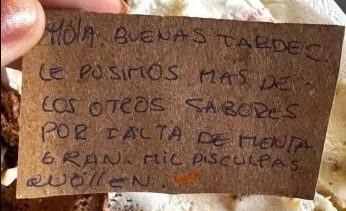 HOLA. BUENAS TARDES.
LE PUSIMOS MAS DE
LOS OTROS SABORES
POR FALTA DE MENTA
GRAN. MIL DISCULPAS